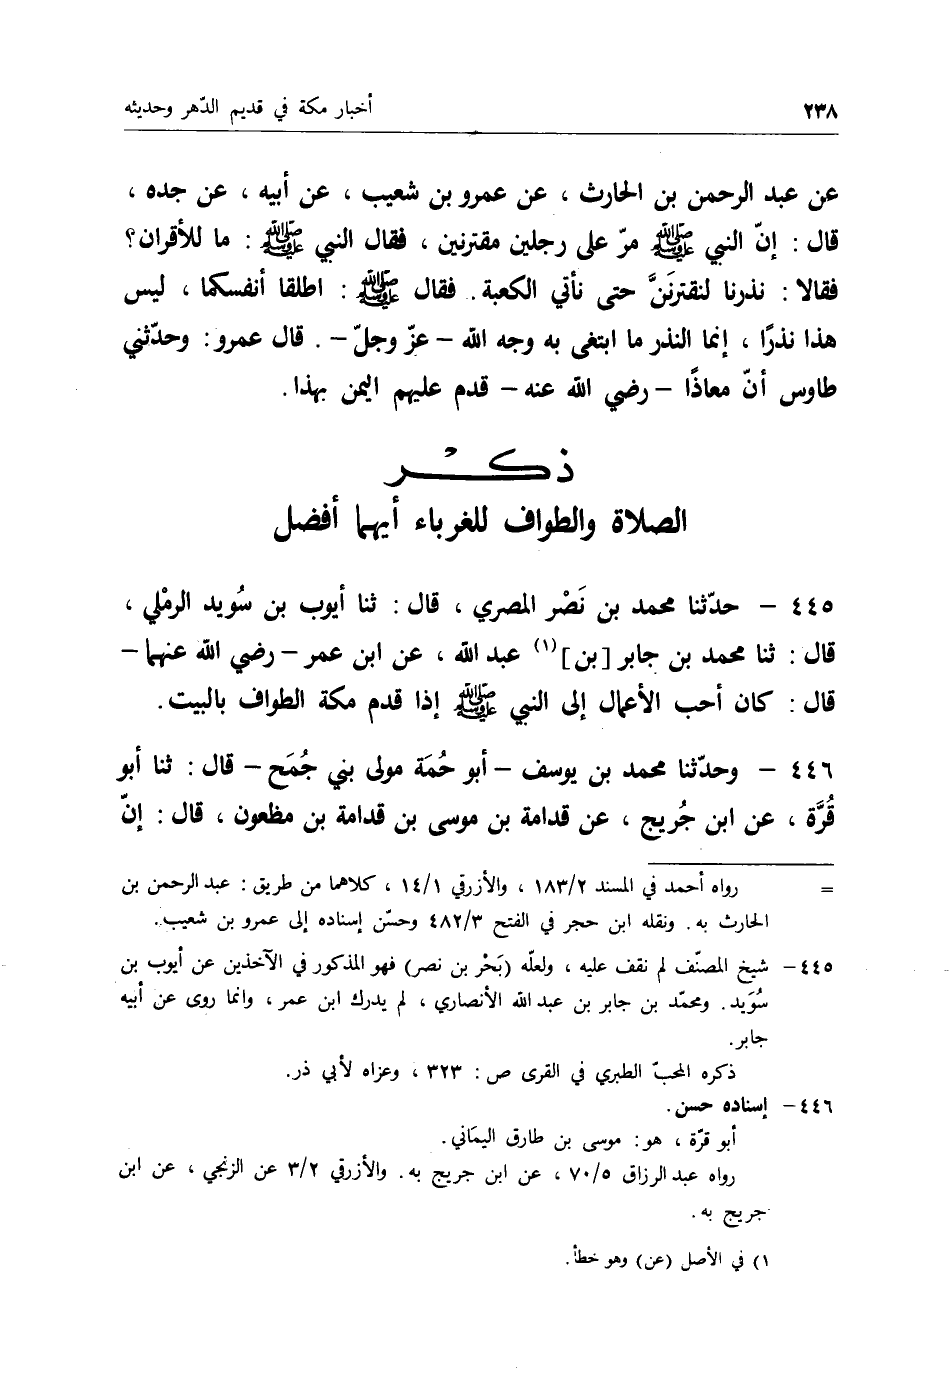 ٢٣٨ أخبار مكة في قديم الدّهر وحديثه
عن عبد الرحمن بن الحارث ، عن عمرو بن شعيب ، عن أبيه ، عن جده ،
قال : إنّ النبي ﷺ مرّ على رجلين مقترنين ، فقال النبي ﷺ : ما للأقران؟
فقالا : نذرنا لنقترنَنَّ حتى نأتي الكعبة. فقال ﷺ : اطلقا أنفسكما ، ليس
هذا نذرًا ، إنما النذر ما ابتغى به وجه الله – عزّ وجلّ – . قال عمرو : وحدّثني
طاوس أنّ معاذًا – رضي الله عنه – قدم عليهم اليمن بهذا.
ذكر
الصلاة والطواف للغرباء أيهما أفضل
٤٤٥ – حدّثنا محمد بن نَصْر المصري ، قال : ثنا أيوب بن سُويد الرملي ،
قال : ثنا محمد بن جابر [بن] (١) عبد الله ، عن ابن عمر – رضي الله عنهما –
قال : كان أحب الأعمال إلى النبي ﷺ إذا قدم مكة الطواف بالبيت.
٤٤٦ – وحدّثنا محمد بن يوسف – أبو حُمَة مولى بني جُمَح – قال : ثنا أبو
قُرَّة ، عن ابن جُريج ، عن قدامة بن موسى بن قدامة بن مظعون ، قال : إنّ
= رواه أحمد في المسند ١٨٣/٢ ، والأزرقي ١٤/١ ، كلاهما من طريق : عبد الرحمن بن
الحارث به. ونقله ابن حجر في الفتح ٤٨٢/٣ وحسّن إسناده إلى عمرو بن شعيب.
٤٤٥ – شيخ المصنّف لم نقف عليه ، ولعلّه (بَحْر بن نصر) فهو المذكور في الآخذين عن أيوب بن
سُوَيد. ومحمّد بن جابر بن عبد الله الأنصاري ، لم يدرك ابن عمر ، وانما روى عن أبيه
جابر.
ذكره المحبّ الطبري في القرى ص : ٣٢٣ ، وعزاه لأبي ذر.
٤٤٦ – إسناده حسن.
أبو قرّة ، هو : موسى بن طارق اليمَاني.
رواه عبد الرزاق ٧٠/٥ ، عن ابن جريج به. والأزرقي ٣/٢ عن الزنجي ، عن ابن
جريج به.
١) في الأصل (عن) وهو خطأ.